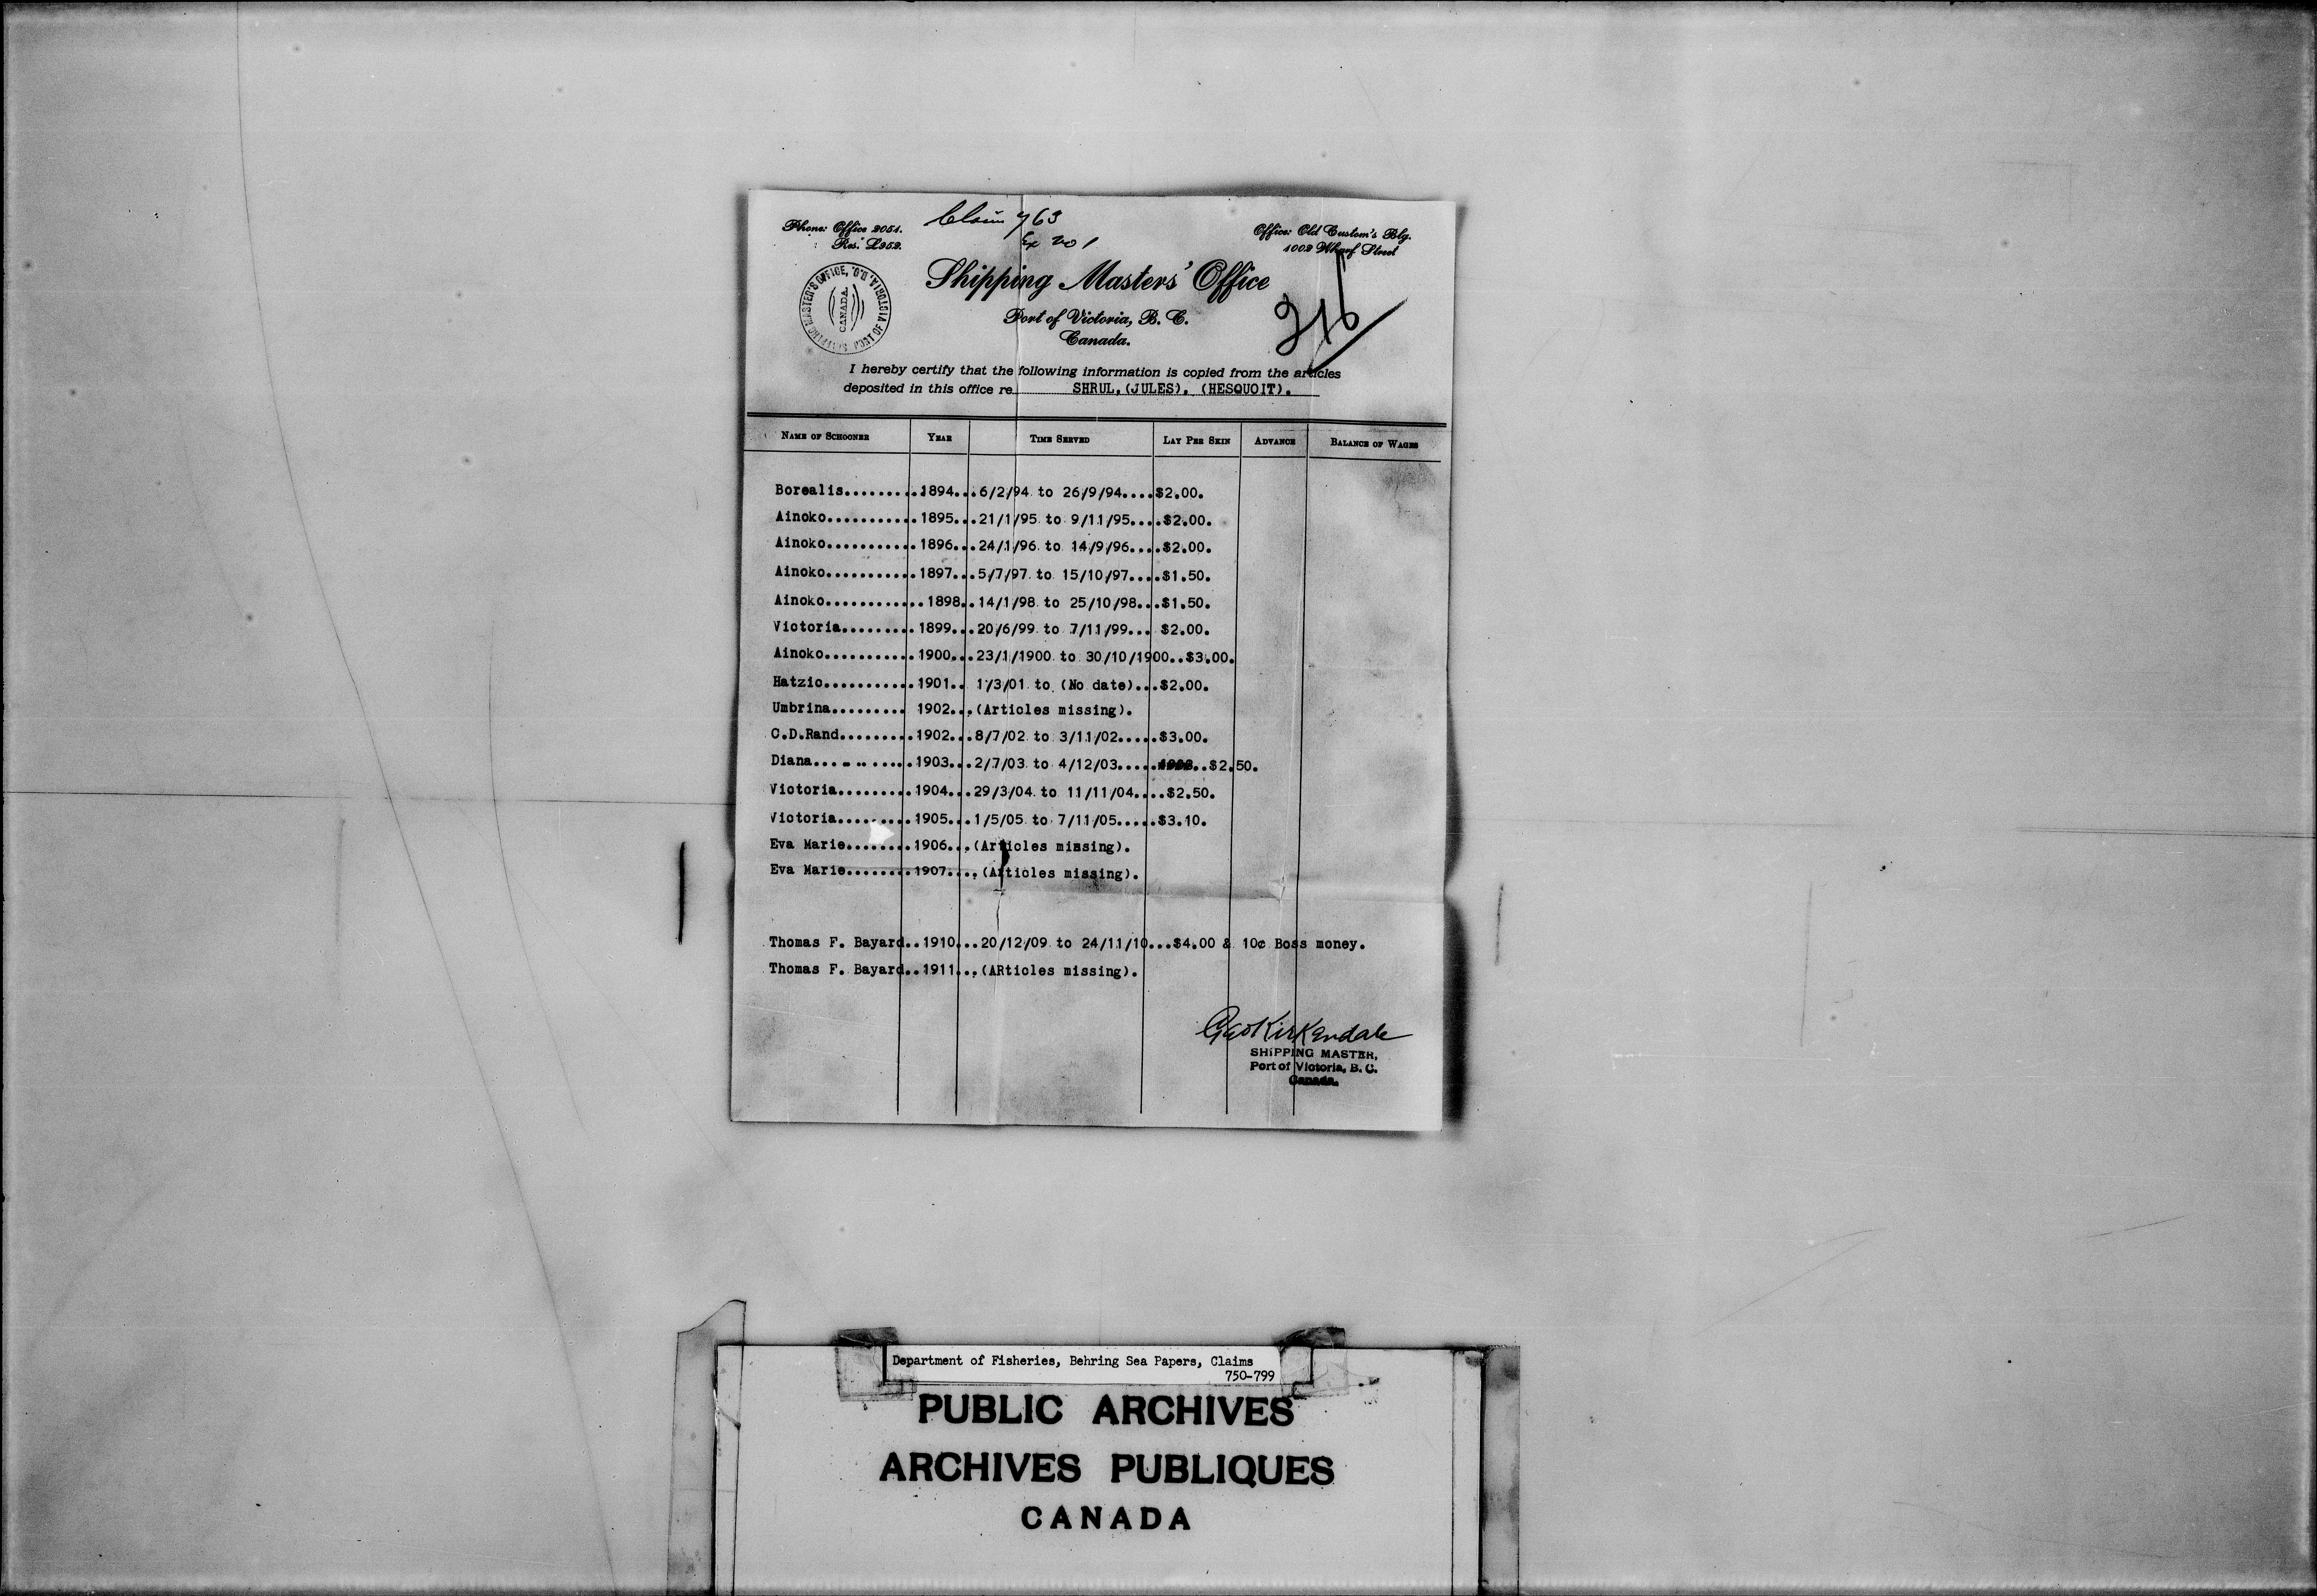 Claim 763
Ex No 1
Phone: Office 2051.
Res. L252.
Office: Old Custom's Blg.
1002 Wharf Street
SHIPPING MASTER'S OFFICE, PORT OF VICTORIA, B.C.
CANADA.
Shipping Masters' Office
Port of Victoria, B. C.
Canada.
I hereby certify that the following information is copied from the articles
deposited in this office re SHRUL,(JULES), (HESQUOIT).
NAME OF SCHOONER YEAR TIME SERVED LAY PER SKIN ADVANCE BALANCE OF WAGES
Borealis.........1894...6/2/94 to 26/9/94....$2.00.
Ainoko...........1895...21/1/95 to 9/11/95....$2.00.
Ainoko...........1896...24/1/96 to 14/9/96....$2.00.
Ainoko...........1897...5/7/97 to 15/10/97....$1.50.
Ainoko............1898..14/1/98 to 25/10/98...$1.50.
Victoria.........1899...20/6/99 to 7/11/99... $2.00.
Ainoko...........1900...23/1/1900 to 30/10/1900..$3.00.
Hatzic...........1901.. 1/3/01 to (No date)...$2.00.
Umbrina......... 1902...(Articles missing).
C.D.Rand.........1902...8/7/02 to 3/11/02.....$3.00.
Diana............1903...2/7/03 to 4/12/03.......$2.50.
Victoria.........1904...29/3/04 to 11/11/04....$2.50.
Victoria.........1905...1/5/05 to 7/11/05.....$3.10.
Eva Marie........1906...(Articles missing).
Eva Marie........1907....(Articles missing).
Thomas F. Bayard..1910...20/12/09 to 24/11/10...$4.00 & 10¢ Boss money.
Thomas F. Bayard..1911...(ARticles missing).
Geo Kirkendale
SHIPPING MASTER,
Port of Victoria, B. C.
Canada.
Department of Fisheries, Behring Sea Papers, Claims
750-799
PUBLIC ARCHIVES
ARCHIVES PUBLIQUES
CANADA